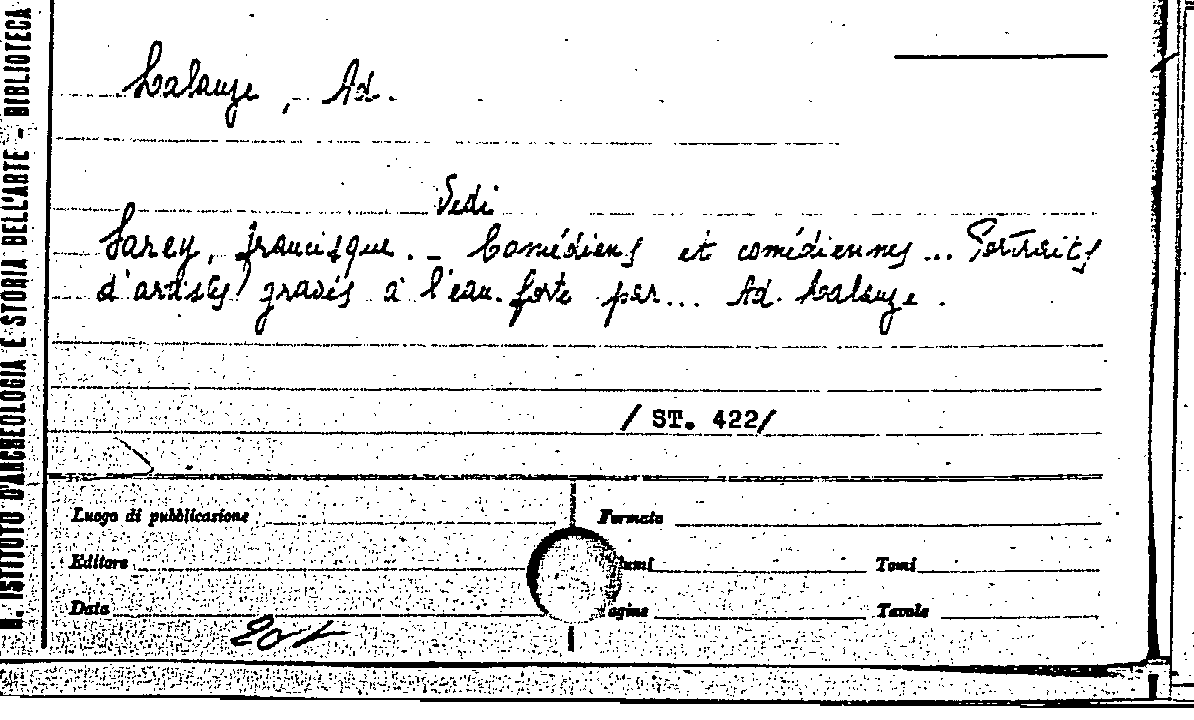 R. ISTITUTO D'ARCHEOLOGIA E STORIA DELL'ARTE - BIBLIOTECA
Lalauze, Ad.
Vedi
Sarcey, Francisque. - Comédiens et comédiennes... Portraits
d'artistes gravés à l'eau-forte par... Ad. Lalauze.
/ ST. 422/
Luogo di pubblicazione Formato
Editore umi Tomi
Data agine Tavole